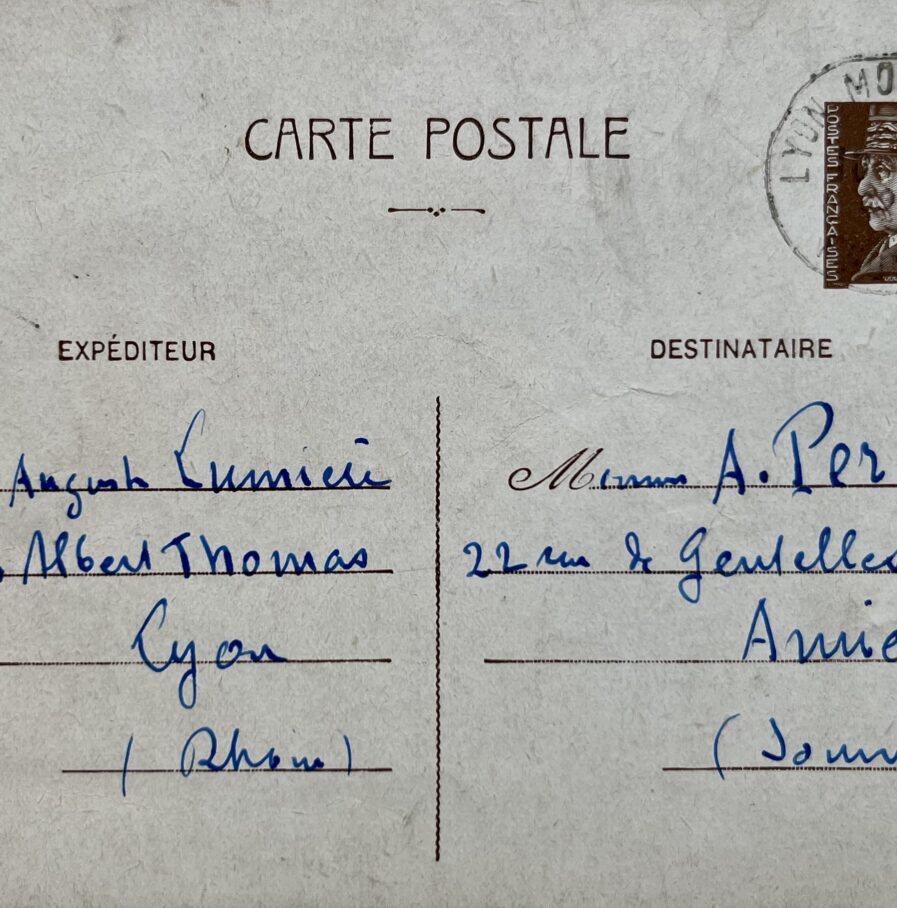 LYON MO
POSTES FRANÇAISES
CARTE POSTALE
EXPÉDITEUR
Auguste Lumière
Albert Thomas
Lyon
(Rhône)
DESTINATAIRE
Monsieur A. Per
22 rue de Gentelles
Amie
(Somm